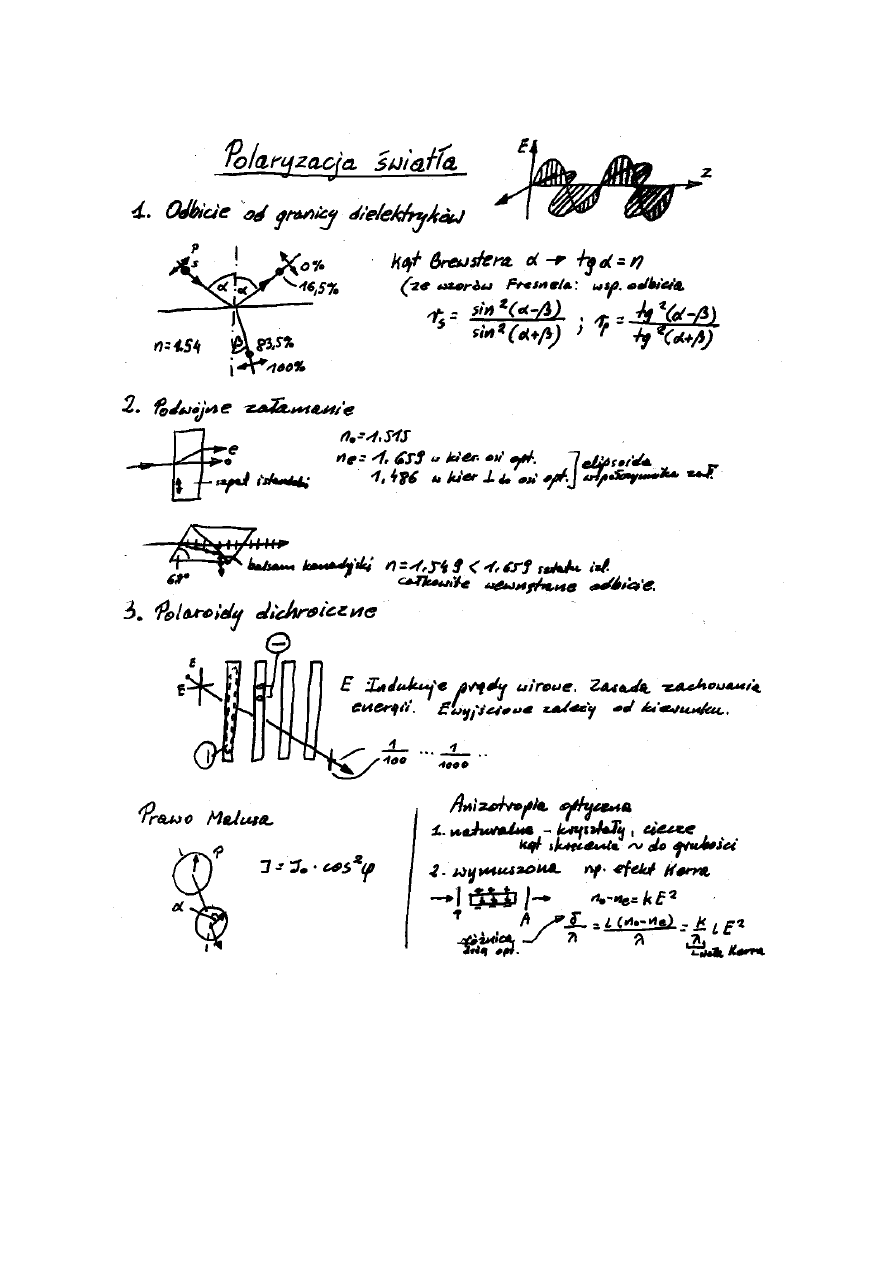 Polaryzacja światła
E
z
1. Odbicie od granicy dielektryków
P
s
α α
0%
16,5%
n=1.54
β
83,5%
100%
kąt Brewstera α → tgα = n
(ze wzorów Fresnela: wsp. odbicia
r_s = sin²(α-β) / sin²(α+β) ; r_p = tg²(α-β) / tg²(α+β)
2. Podwójne załamanie
e
o
szpat islandzki
n₀=1,515
ne=1,659 w kier. osi opt.
1,486 w kier ⊥ do osi opt.
elipsoida
współczynnika zał.
68°
balsam kanadyjski n=1,549 < 1,659 szpatu isl.
całkowite wewnętrzne odbicie.
3. Polaroidy dichroiczne
E
E
E Indukuje prądy wirowe. Zasada zachowania
energii. Ewyjściowe zależy od kierunku.
1/100 ... 1/1000 ..
Prawo Malusa
P
α
J = J₀ · cos²φ
Anizotropia optyczna
1. naturalna – kryształy, ciecze
kąt skręcenia ~ do grubości
2. wymuszona np. efekt Kerra
P
A
n₀-ne = kE²
różnica
dróg opt.
δ/λ = l(n₀-ne)/λ = k/λ l E²
stała Kerra